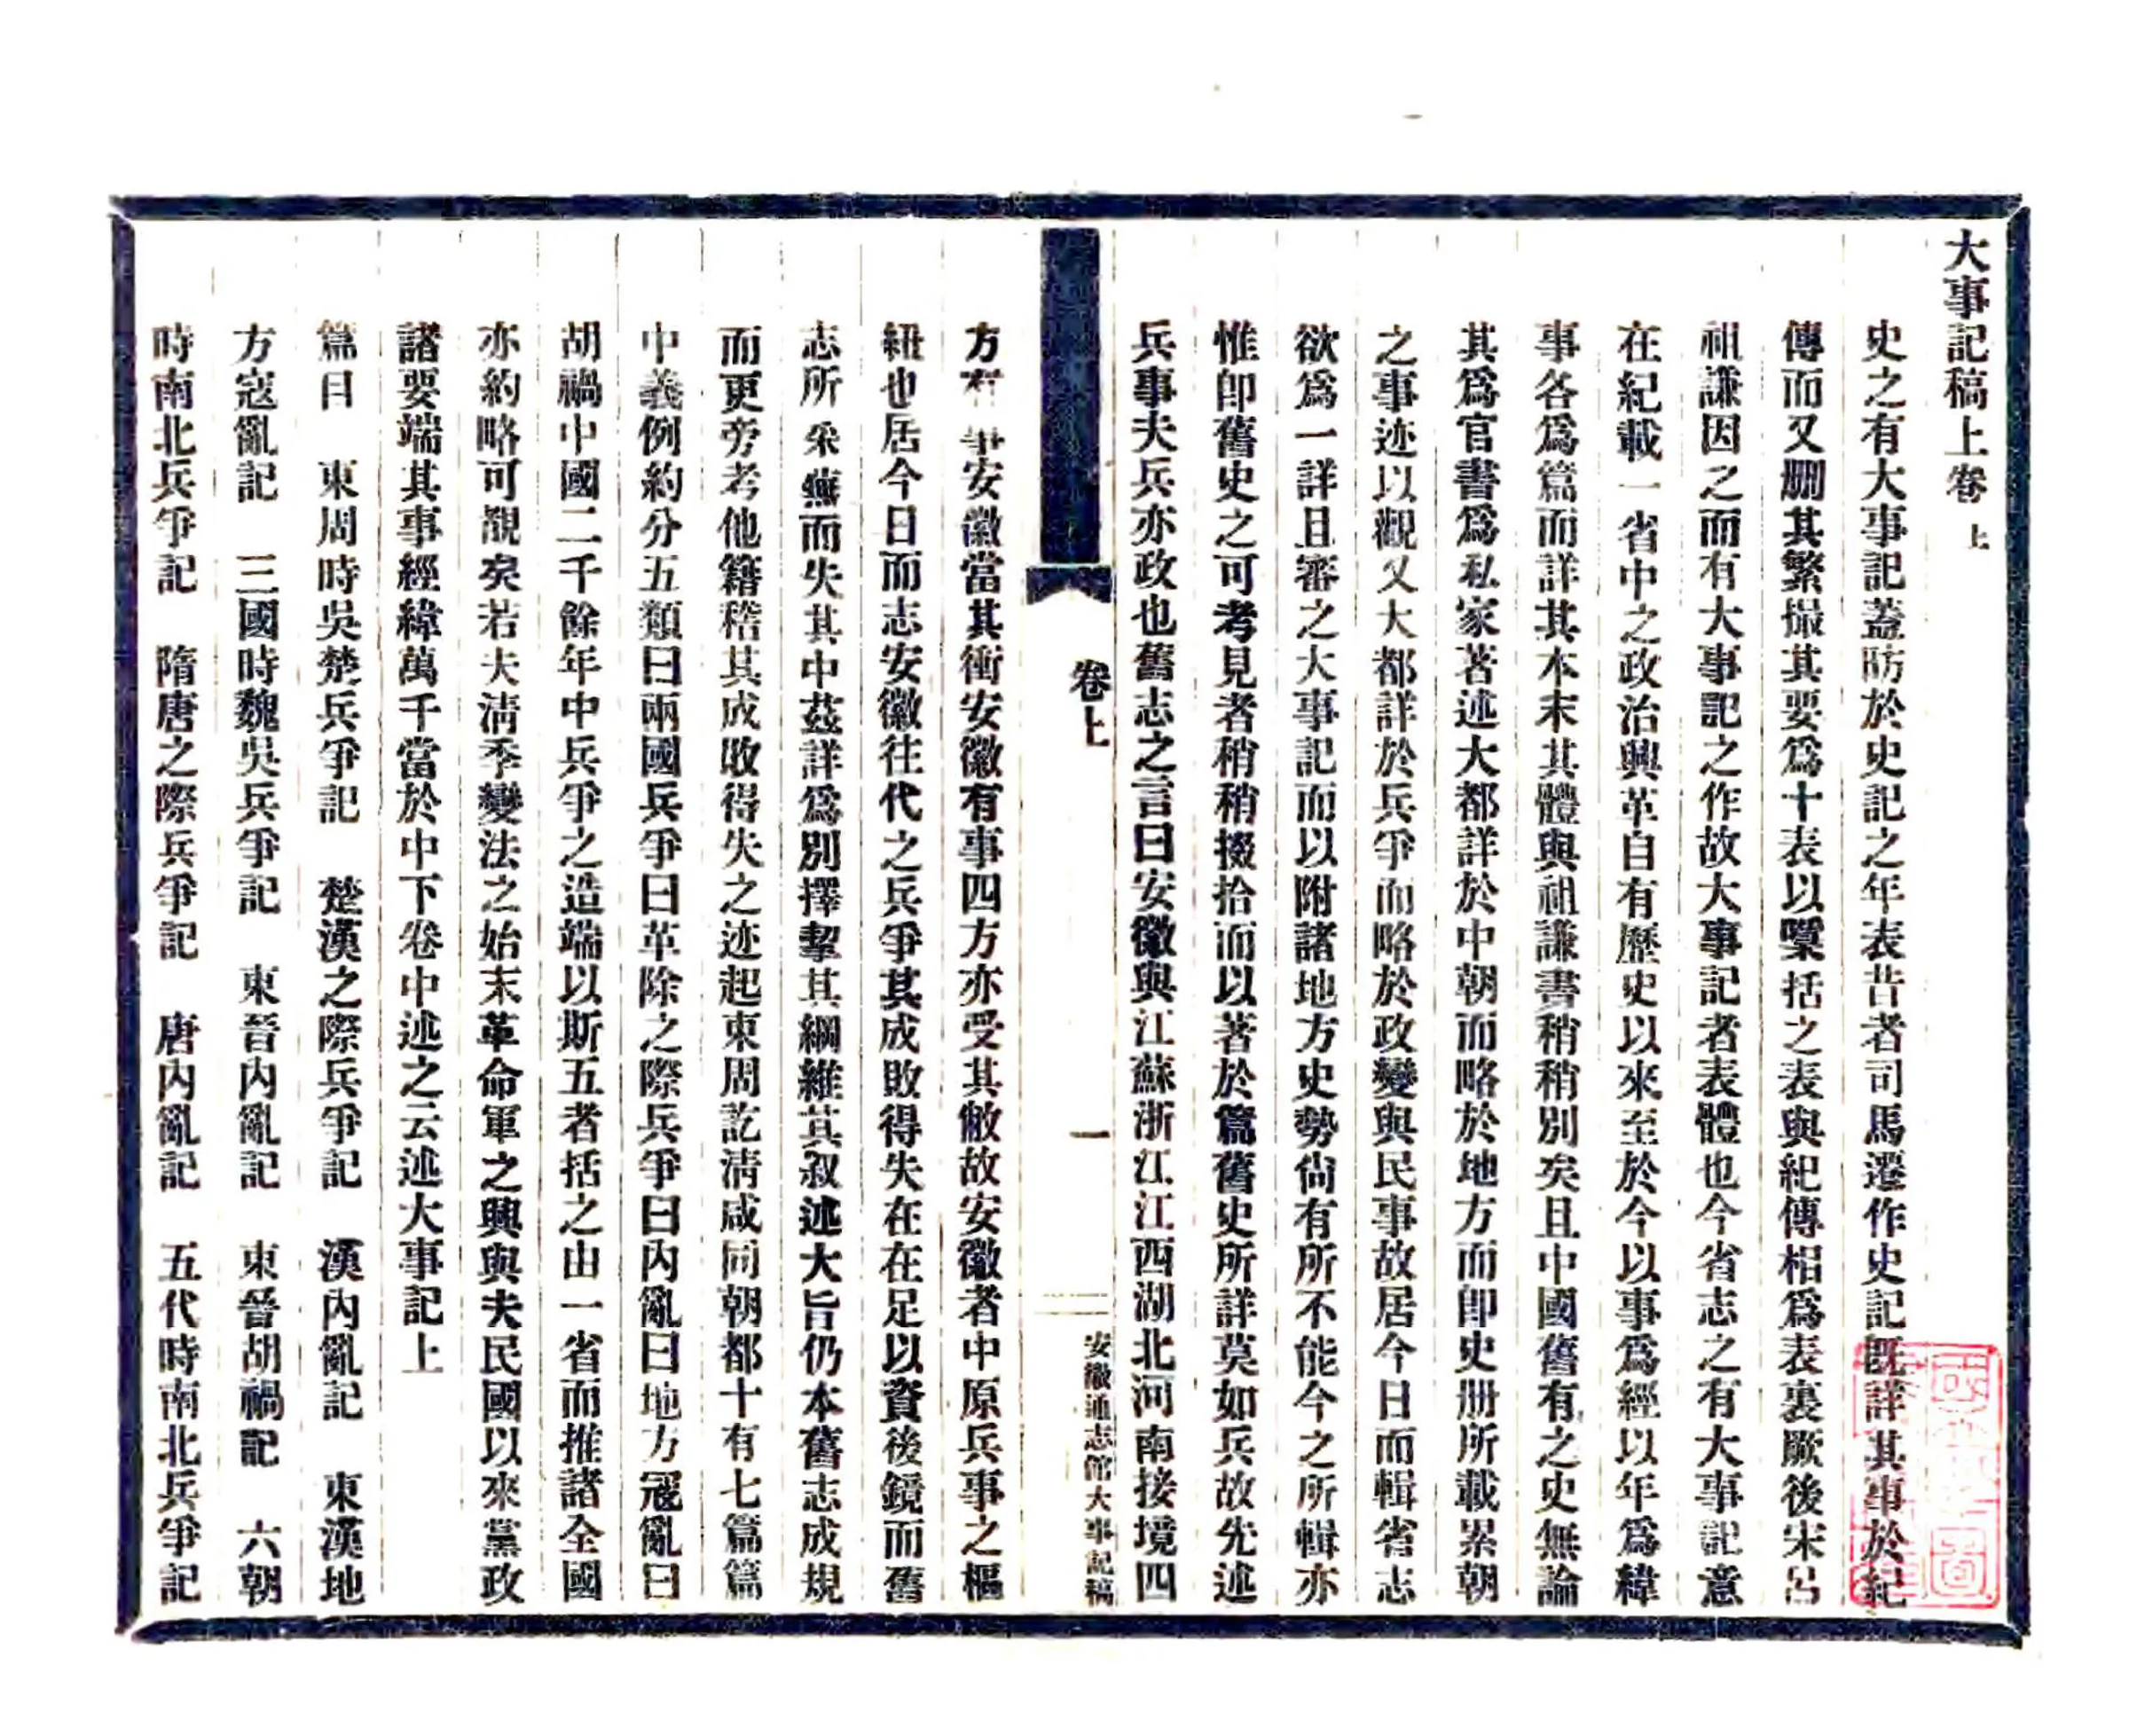 大事記稿上卷 上
史之有大事記蓋昉於史記之年表昔者司馬遷作史記既詳其事於紀
傳而又刪其繁撮其要爲十表以櫽括之表與紀傳相爲表裏厥後宋呂
祖謙因之而有大事記之作故大事記者表體也今省志之有大事記意
在紀載一省中之政治興革自有歷史以來至於今以事爲經以年爲緯
事各爲篇而詳其本末其體與祖謙書稍稍別矣且中國舊有之史無論
其爲官書爲私家著述大都詳於中朝而略於地方而卽史册所載累朝
之事迹以觀又大都詳於兵爭而略於政變與民事故居今日而輯省志
欲爲一詳且審之大事記而以附諸地方史勢尙有所不能今之所輯亦
惟卽舊史之可考見者稍稍掇拾而以著於篇舊史所詳莫如兵故先述
兵事夫兵亦政也舊志之言曰安徽與江蘇浙江江西湖北河南接境四
卷上
一
安徽通志館大事記稿
方有事安徽當其衝安徽有事四方亦受其敝故安徽者中原兵事之樞
紐也居今日而志安徽往代之兵爭其成敗得失在在足以資後鏡而舊
志所采蕪而失其中茲詳爲別擇挈其綱維其叙述大旨仍本舊志成規
而更旁考他籍稽其成敗得失之迹起東周訖淸咸同朝都十有七篇篇
中義例約分五類曰兩國兵爭曰革除之際兵爭曰內亂曰地方寇亂曰
胡禍中國二千餘年中兵爭之造端以斯五者括之由一省而推諸全國
亦約略可覩矣若夫淸季變法之始末革命軍之興與夫民國以來黨政
諸要端其事經緯萬千當於中下卷中述之云述大事記上
篇目 東周時吳楚兵爭記 楚漢之際兵爭記 漢內亂記 東漢地
方寇亂記 三國時魏吳兵爭記 東晉內亂記 東晉胡禍記 六朝
時南北兵爭記 隋唐之際兵爭記 唐內亂記 五代時南北兵爭記